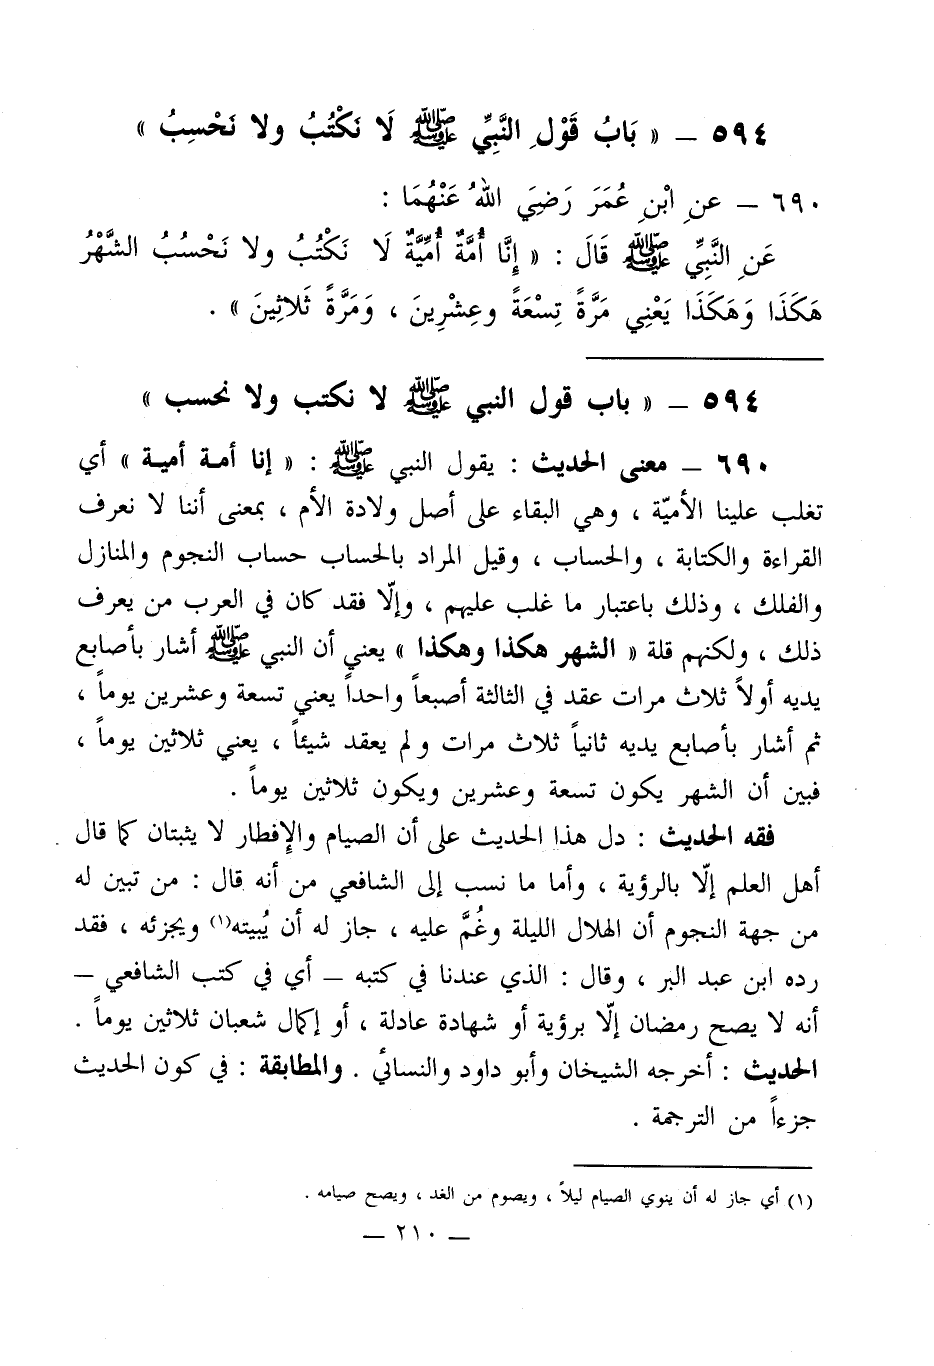 ٥٩٤ ــ « بَابُ قَوْلِ النَّبِيِّ ﷺ لَا نَكْتُبُ ولا نَحْسِبُ »
٦٩٠ ــ عنِ ابْنِ عُمَرَ رَضِيَ اللهُ عَنْهُمَا :
عَنِ النَّبِيِّ ﷺ قَالَ : « إِنَّا أُمَّةٌ أُمِّيَّةٌ لَا نَكْتُبُ ولا نَحْسُبُ الشَّهْرُ
هَكَذَا وَهَكَذَا يَعْنِي مَرَّةً تِسْعَةً وعِشْرِينَ ، وَمَرَّةً ثَلاثِينَ » .
٥٩٤ ــ « باب قول النبي ﷺ لا نكتب ولا نحسب »
٦٩٠ ــ معنى الحديث : يقول النبي ﷺ : « إنا أمة أمية » أي
تغلب علينا الأميّة ، وهي البقاء على أصل ولادة الأم ، بمعنى أننا لا نعرف
القراءة والكتابة ، والحساب ، وقيل المراد بالحساب حساب النجوم والمنازل
والفلك ، وذلك باعتبار ما غلب عليهم ، وإلّا فقد كان في العرب من يعرف
ذلك ، ولكنهم قلة « الشهر هكذا وهكذا » يعني أن النبي ﷺ أشار بأصابع
يديه أولاً ثلاث مرات عقد في الثالثة أصبعاً واحداً يعني تسعة وعشرين يوماً ،
ثم أشار بأصابع يديه ثانياً ثلاث مرات ولم يعقد شيئاً ، يعني ثلاثين يوماً ،
فبين أن الشهر يكون تسعة وعشرين ويكون ثلاثين يوماً .
فقه الحديث : دل هذا الحديث على أن الصيام والإفطار لا يثبتان كما قال
أهل العلم إلّا بالرؤية ، وأما ما نسب إلى الشافعي من أنه قال : من تبين له
من جهة النجوم أن الهلال الليلة وغُمَّ عليه ، جاز له أن يُبيته(١) ويجزئه ، فقد
رده ابن عبد البر ، وقال : الذي عندنا في كتبه ــ أي في كتب الشافعي ــ
أنه لا يصح رمضان إلّا برؤية أو شهادة عادلة ، أو إكمال شعبان ثلاثين يوماً .
الحديث : أخرجه الشيخان وأبو داود والنسائي . والمطابقة : في كون الحديث
جزءاً من الترجمة .
(١) أي جاز له أن ينوي الصيام ليلاً ، ويصوم من الغد ، ويصح صيامه .
ــ ٢١٠ ــ